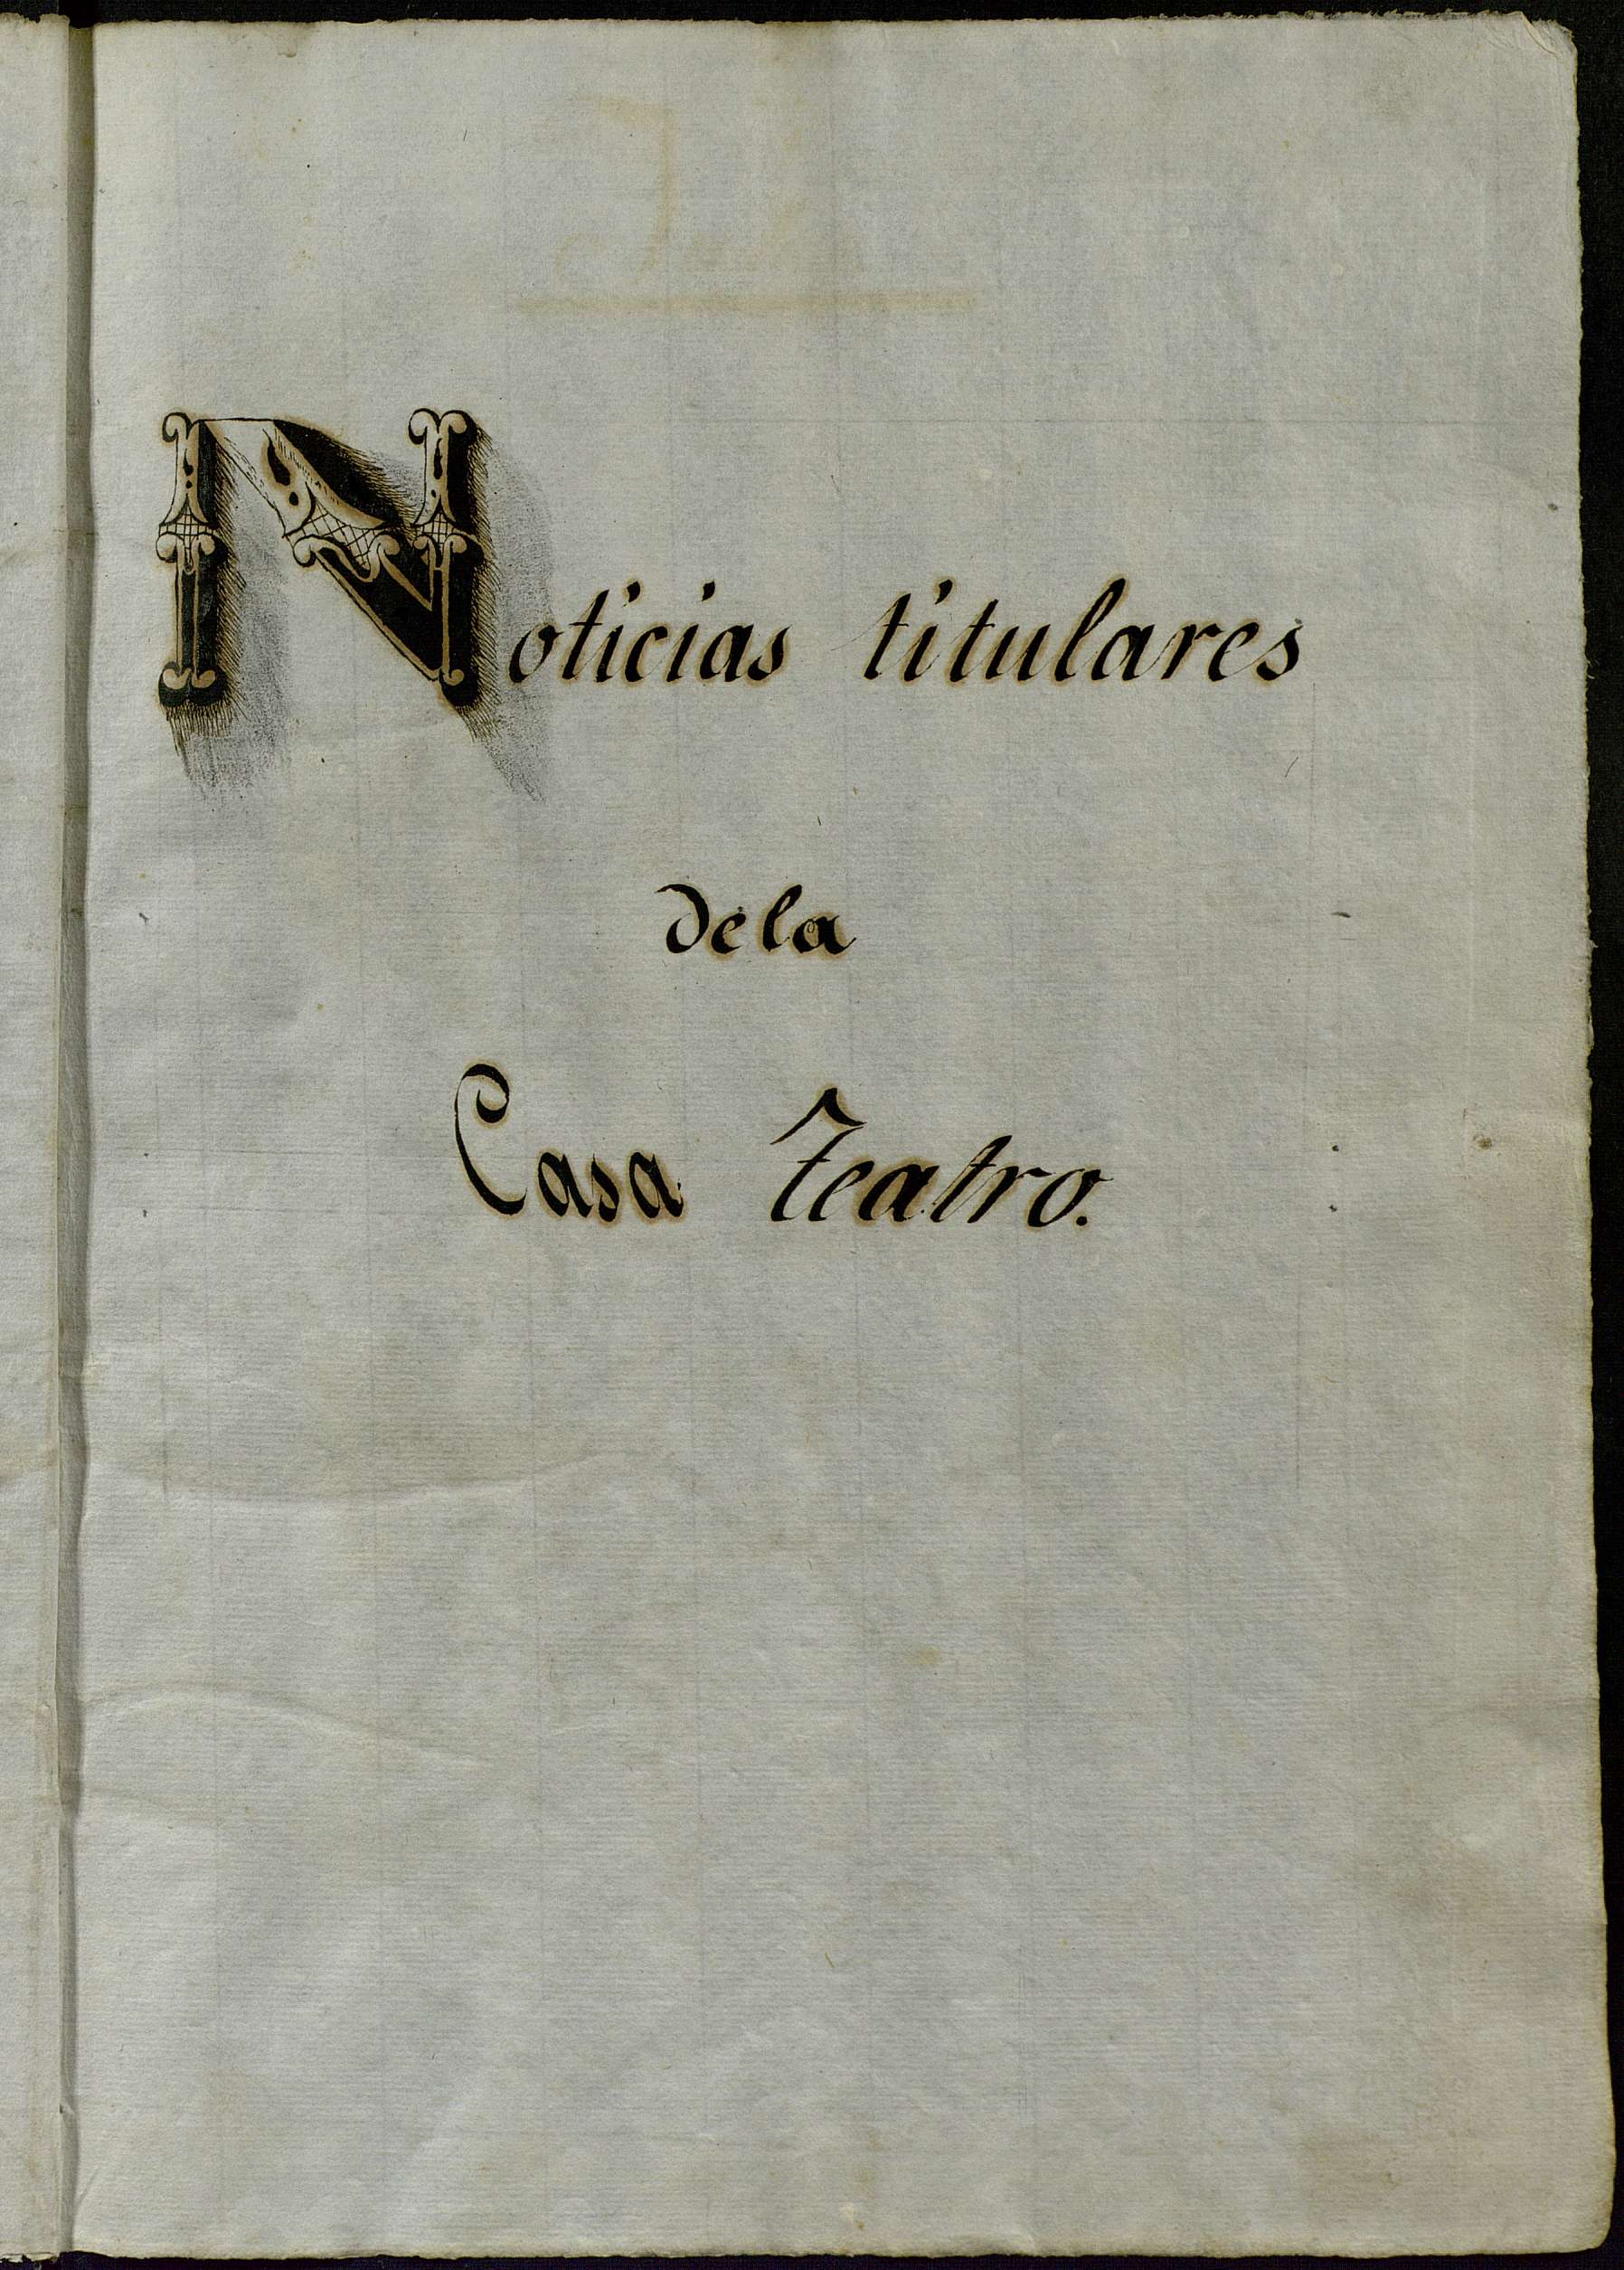 Noticias titulares
dela
Casa Teatro.